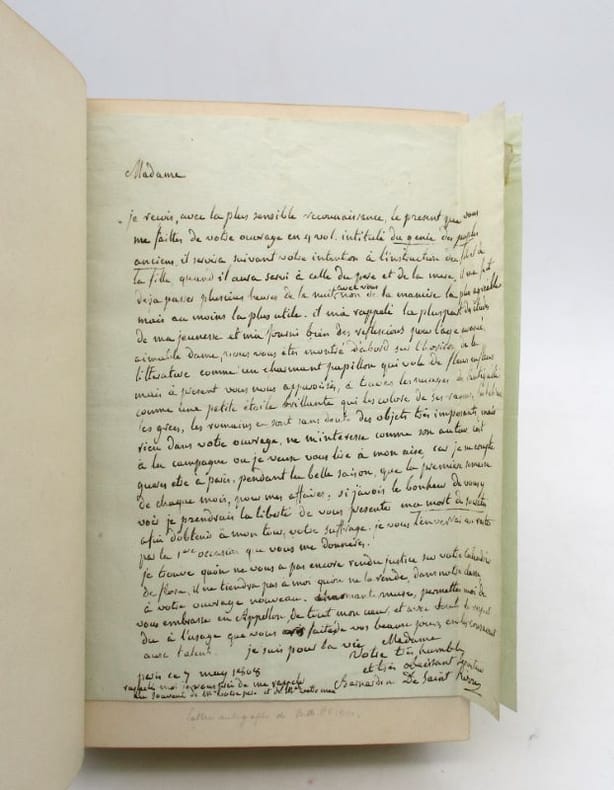 Madame
je reçois, avec la plus sensible reconnaissance, le present que vous
me faittes de votre ouvrage en 4 vol. intitulé du genie des peuples
anciens. il servira suivant votre intention à l'instruction du fils et à
la fille, quand il aura servi à celle du pere et de la mere, il m'a fait
deja passer plusieurs heures de la nuit avec vous non de la maniere la plus agreable
mais au moins la plus utile. il m'a rappelé la pluspart des études
de ma jeunesse et m'a fourni bien des reflexions pour l'age avancé,
aimable dame, vous vous etes montrée d'abord sur l'horison de la
litterature comme un charmant papillon qui vole de fleurs en fleurs
mais à present vous nous apparoisses, à travers les nuages de l'antiquité
comme une petite étoile brillante qui les colore de ses rayons,
les grecs, les romains en sont sans doute des objets très imposants, mais
rien dans votre ouvrage, ne m'interesse comme son auteur. c'est
à la campagne où je veux vous lire à mon aise, car je ne compte
gueres etre à paris, pendant la belle saison, que la premiere semaine
de chaque mois, pour mes affaires, si j'avois le bonheur de vous y
voir je prendrais la liberté de vous presenter ma mort de socrate
afin d'obtenir à mon tour, votre suffrage. je vous l'enverrai au reste
par la 1ere occasion que vous me donneres.
je trouve qu'on ne vous a pas encore rendu justice sur votre calendrier
de flore, il ne tiendra pas à moi qu'on ne la rende, dans notre classe,
à votre ouvrage nouveau. charmante muse, permettes moi de
vous embrasser en Appollon, de tout mon cœur, et avec tout le respect
du à l'usage que vous faites de vos beaux jours, en les consacrant
aux talens. je suis pour la vie Madame
Votre très humble
et très obeissant serviteur
paris ce 7 may 1808
De Saint Pierre
rappeles moi je vous prie
au souvenir de
Lettre autographe de